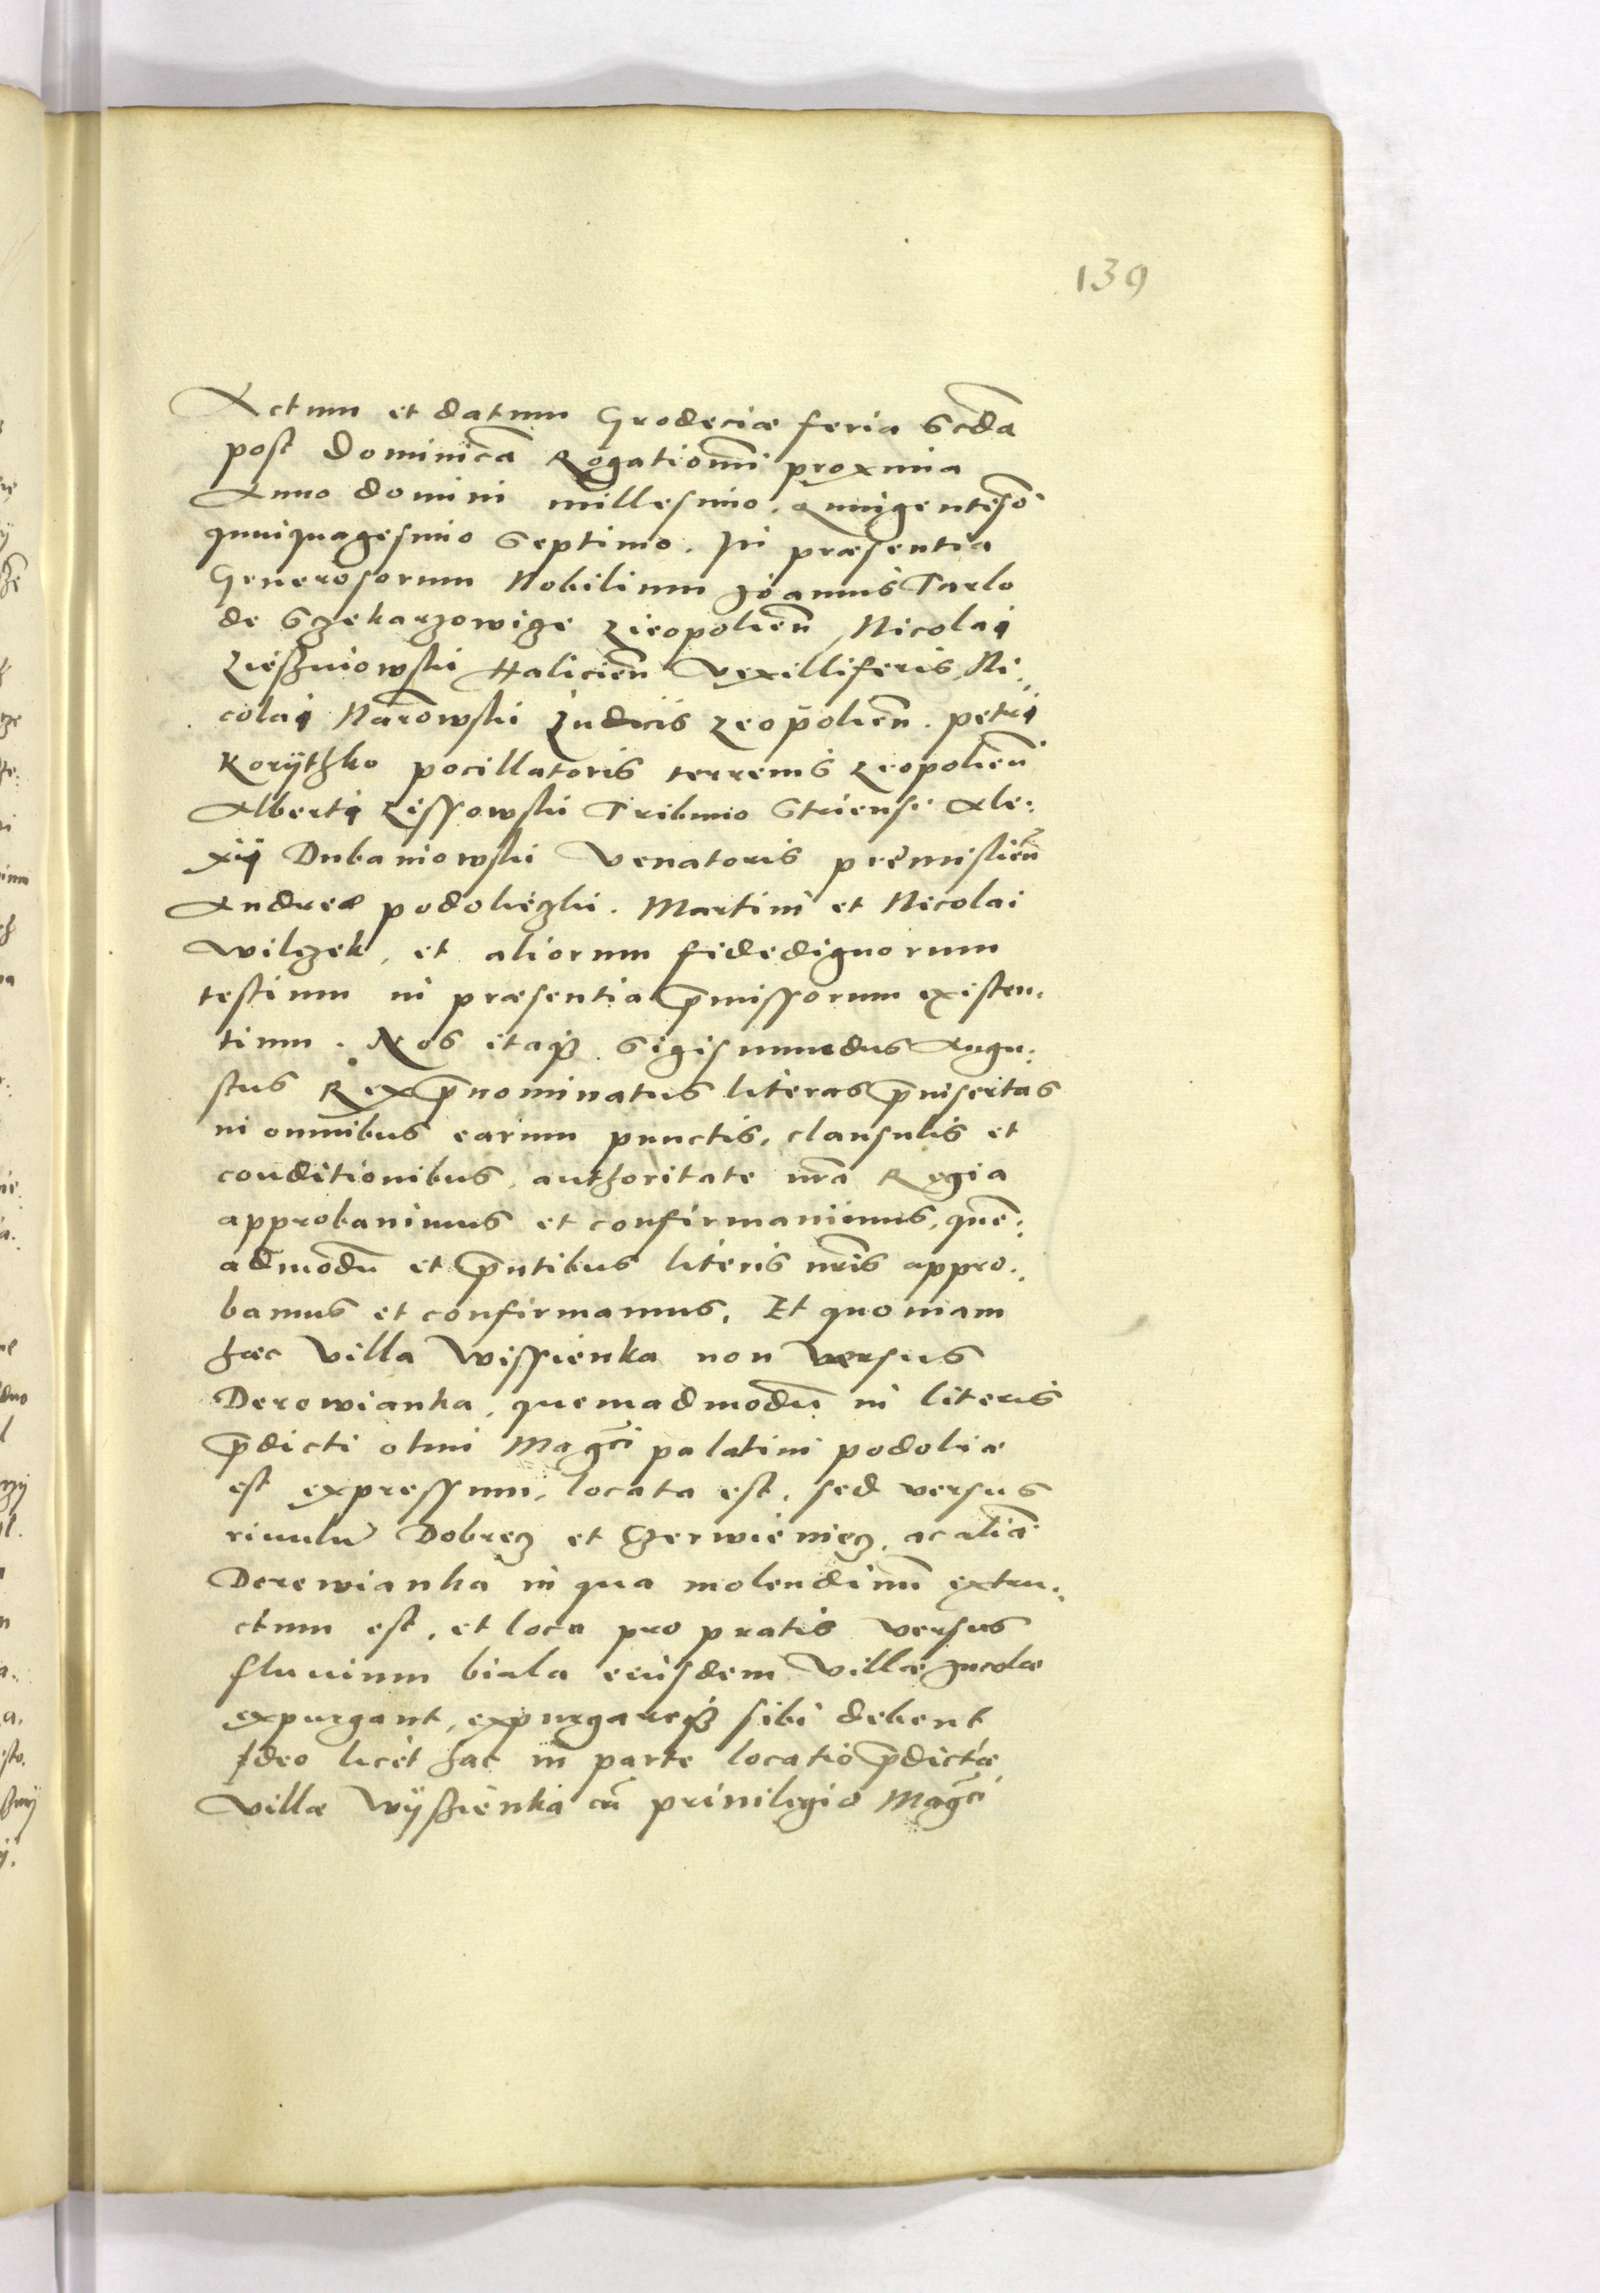 139
Actum et datum Grodeciæ feria Scda
post Dominicā Rogationū proxima
Anno domini millesimo. Quingentesō
quinquagesimo Septimo. In præsentia
Generosorum Nobilium Joannis Tarlo
de Sczekarzowicze Lieopolieñ, Nicolai
Lieszniowski Halicieñ Vexilliferis, Ni:
colai Narowski Judicis Leopolieñ. petri
Korÿthko pocillatoris terrenis Leopolieñ
Alberti Lissowski Tribuno Striensi Ale:
xij Dubaniowski Venatoris premislieñ
Andreæ podolieczki. Martini et Nicolai
Wilczek, et aliorum fidedignorum
testium in præsentia p̄missorum existen:
tium. Nos itaqz Sigismundus Augu:
stus Rex p̄nominatus literas p̄insertas
in omnibus earum punctis, clausulis et
conditionibus, authoritate nrā Regia
approbauimus et confirmauimus, quē:
admodū et p̄ntibus literis nrīs appro:
bamus et confirmamus. Et quoniam
hæc villa Wissienka non versus
Derowianka, quemadmodū in literis
p̄dicti olim Magci palatini podoliæ
est expressum, locata est, sed versus
riuulū Dobrecz et Czerwieniecz, ac aliā
Derewianka in qua molendinū extru:
ctum est, et loca pro pratis versus
fluuium biala eiusdem villæ Incolæ
expurgant, expurgareqz sibi debent
Ideo licet hac in parte locatio p̄dictæ
villæ Wÿszienka cū priuilegio Magci